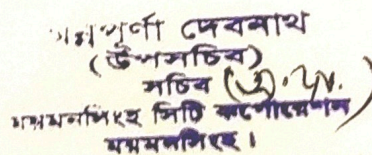 অন্নপূর্ণা দেবনাথ
(উপসচিব)
সচিব
ময়মনসিংহ সিটি কর্পোরেশন
ময়মনসিংহ।